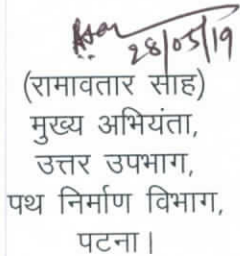 28/05/19
(रामावतार साह)
मुख्य अभियंता,
उत्तर उपभाग,
पथ निर्माण विभाग,
पटना।